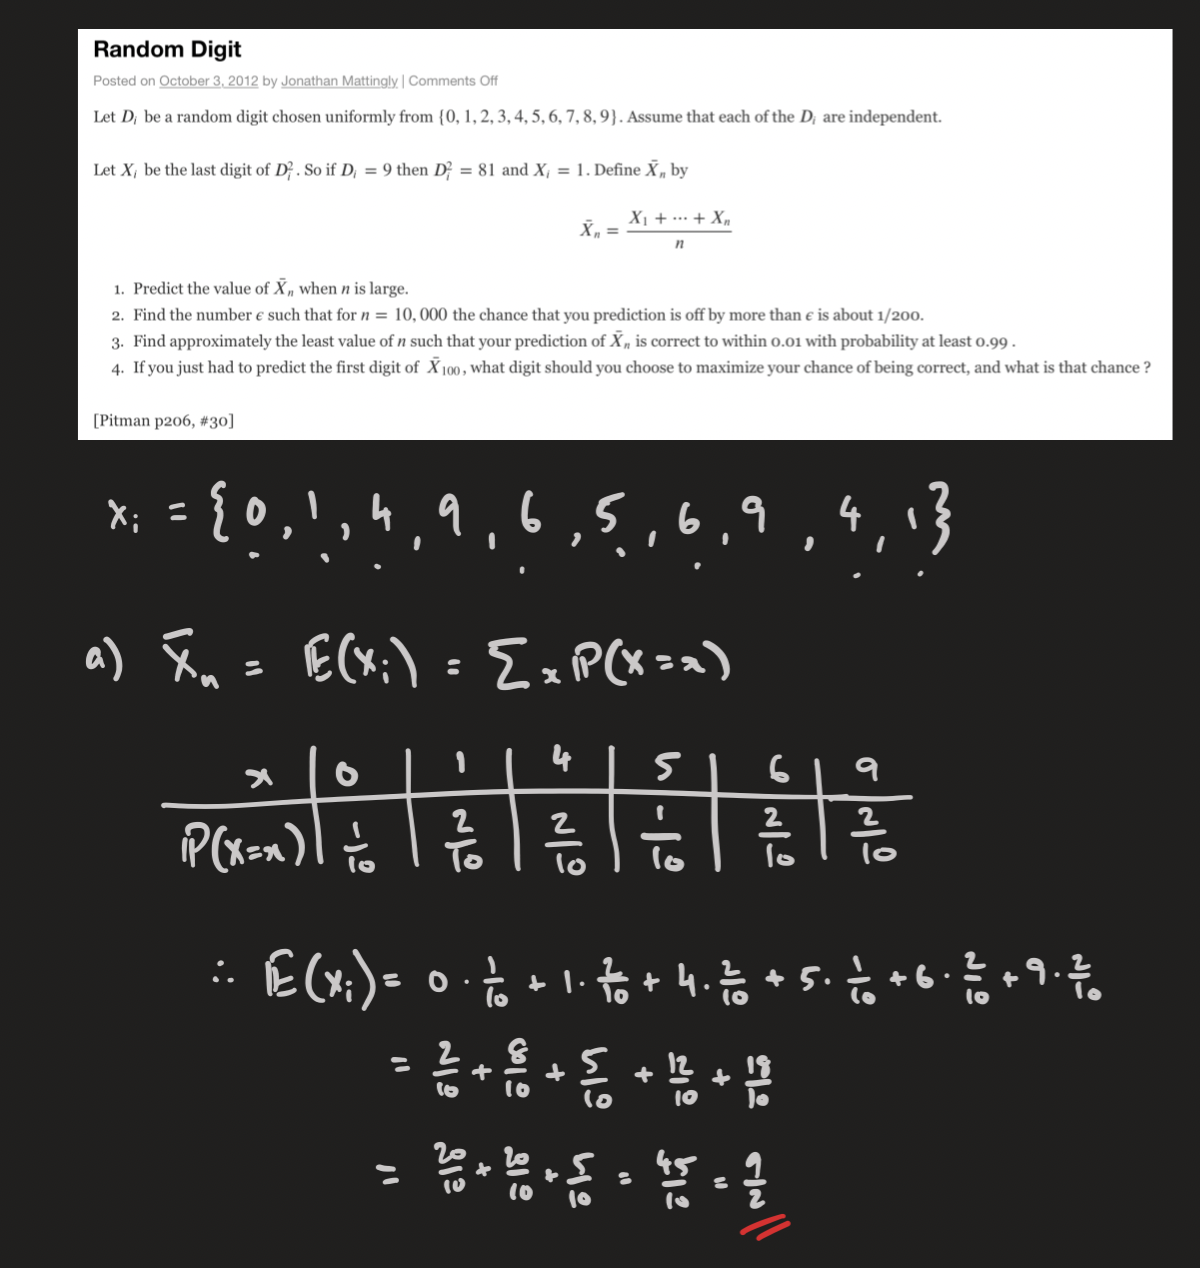 Random Digit
Posted on October 3, 2012 by Jonathan Mattingly | Comments Off
Let Dᵢ be a random digit chosen uniformly from {0, 1, 2, 3, 4, 5, 6, 7, 8, 9}. Assume that each of the Dᵢ are independent.
Let Xᵢ be the last digit of Dᵢ². So if Dᵢ = 9 then Dᵢ² = 81 and Xᵢ = 1. Define X̄ₙ by
X̄ₙ = (X₁ + ··· + Xₙ)/n
1. Predict the value of X̄ₙ when n is large.
2. Find the number ϵ such that for n = 10,000 the chance that you prediction is off by more than ϵ is about 1/200.
3. Find approximately the least value of n such that your prediction of X̄ₙ is correct to within 0.01 with probability at least 0.99 .
4. If you just had to predict the first digit of X̄₁₀₀, what digit should you choose to maximize your chance of being correct, and what is that chance ?
[Pitman p206, #30]
xᵢ = {0, 1, 4, 9, 6, 5, 6, 9, 4, 1}
a) X̄ₙ = 𝔼(xᵢ) = Σ x ℙ(X=x)
x | 0 | 1 | 4 | 5 | 6 | 9
ℙ(X=x) | 1/10 | 2/10 | 2/10 | 1/10 | 2/10 | 2/10
∴ 𝔼(xᵢ) = 0 · 1/10 + 1 · 2/10 + 4 · 2/10 + 5 · 1/10 + 6 · 2/10 + 9 · 2/10
= 2/10 + 8/10 + 5/10 + 12/10 + 18/10
= 20/10 + 20/10 + 5/10 = 45/10 = 9/2